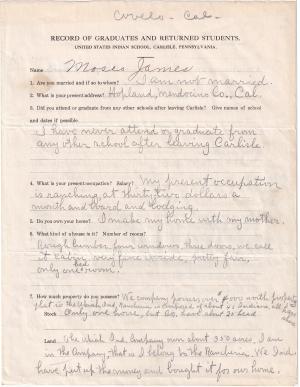 Covelo - Cal-
RECORD OF GRADUATES AND RETURNED STUDENTS,
UNITED STATES INDIAN SCHOOL, CARLISLE, PENNSYLVANIA.
Name Moses James
1. Are you married and if so to whom? I am not married.
2. What is your present address? Hopland, Mendocino Co., Cal.
3. Did you attend or graduate from any other schools after leaving Carlisle? Give names of school
and dates if possible.
I have never attend or graduate from
any other school after leaving Carlisle
4. What is your present occupation? Salary? My present occupation
is ranching, at thirty, two dollars a
month and board and lodging.
5. Do you own your home? I make my home with my mother.
6. What kind of house is it? Number of rooms?
Rough lumber, four windows, three doors, we call
it cabin, very fine outside, pretty fair,
only one bed room.
7. How much property do you possess? We company posses, over worth property
Stock Only one horse, but Co. have about 20 head
Land The Ind. Company own about 350 acres. I am
in the Company, that is I belong to the Rancheria. We Inds
have put up the money and bought it for our home.